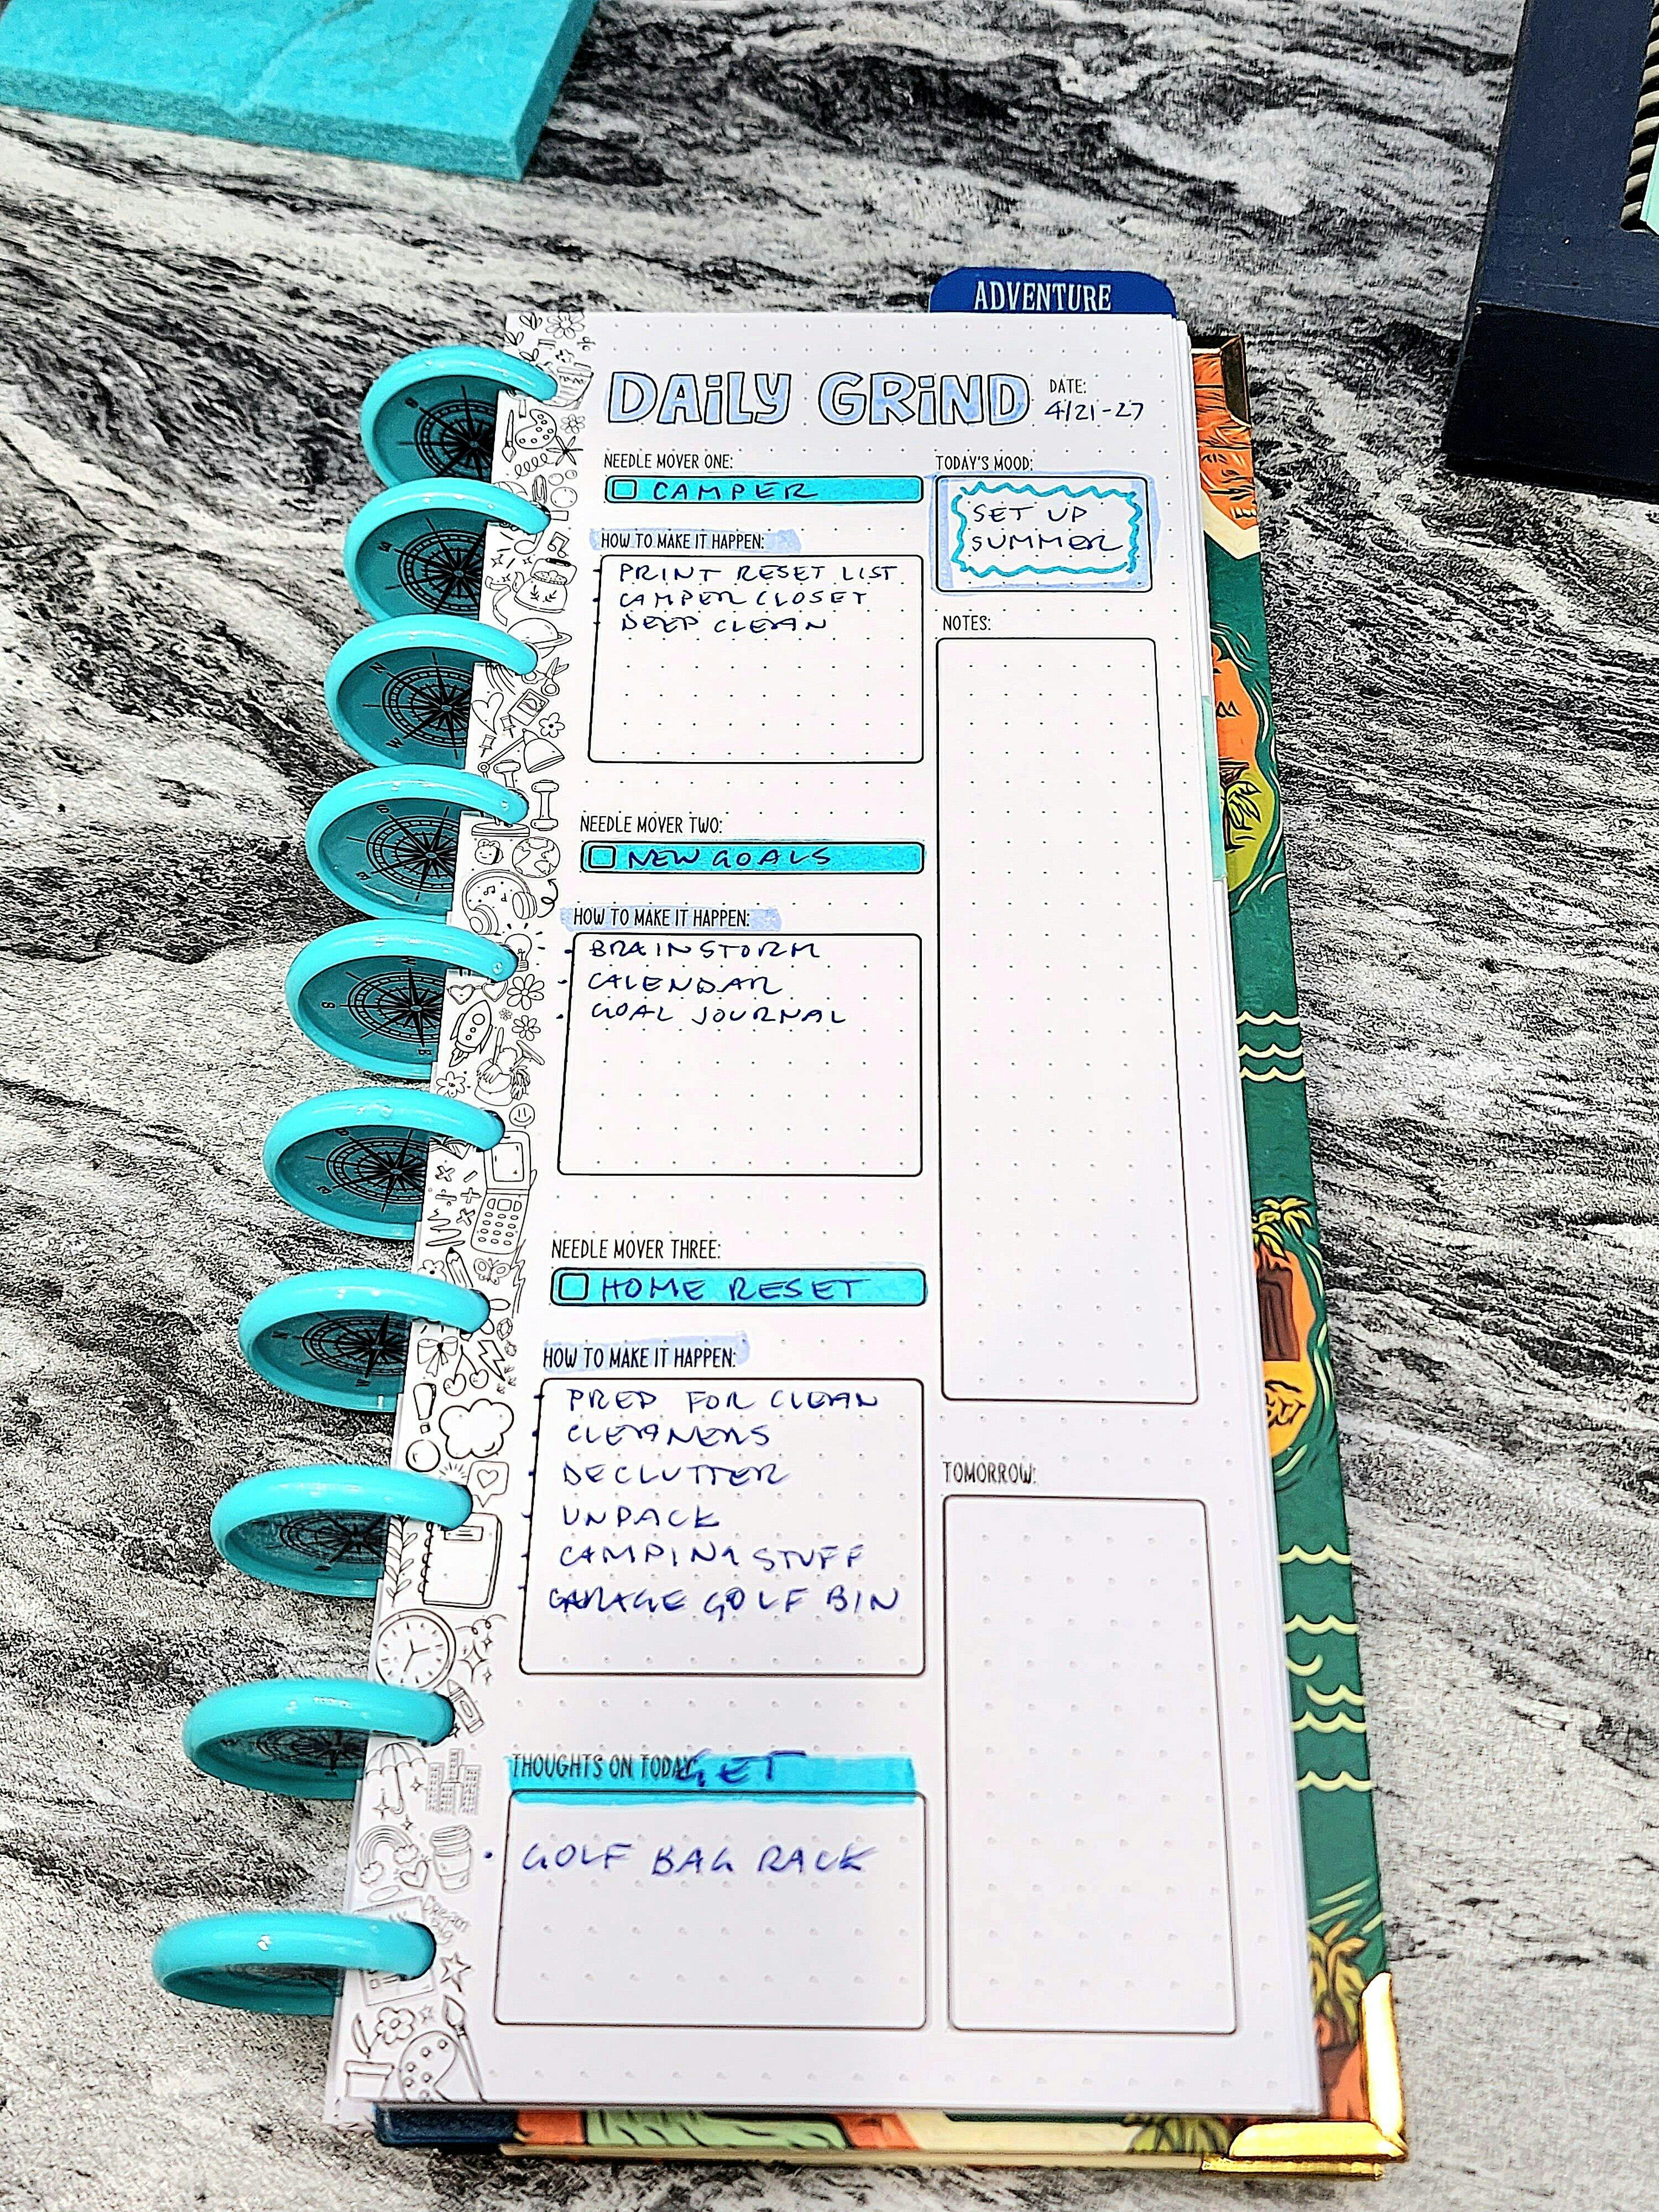 ADVENTURE
DAILY GRIND
DATE:
4/21-27
NEEDLE MOVER ONE:
CAMPER
HOW TO MAKE IT HAPPEN:
PRINT RESET LIST
CAMPER CLOSET
DEEP CLEAN
TODAY'S MOOD:
SET UP
SUMMER
NOTES:
NEEDLE MOVER TWO:
NEW GOALS
HOW TO MAKE IT HAPPEN:
BRAINSTORM
CALENDAR
GOAL JOURNAL
NEEDLE MOVER THREE:
HOME RESET
HOW TO MAKE IT HAPPEN:
PREP FOR CLEAN
CLEANERS
DECLUTTER
UNPACK
CAMPING STUFF
GARAGE GOLF BIN
TOMORROW:
THOUGHTS ON TODAY: GET
GOLF BAG RACK